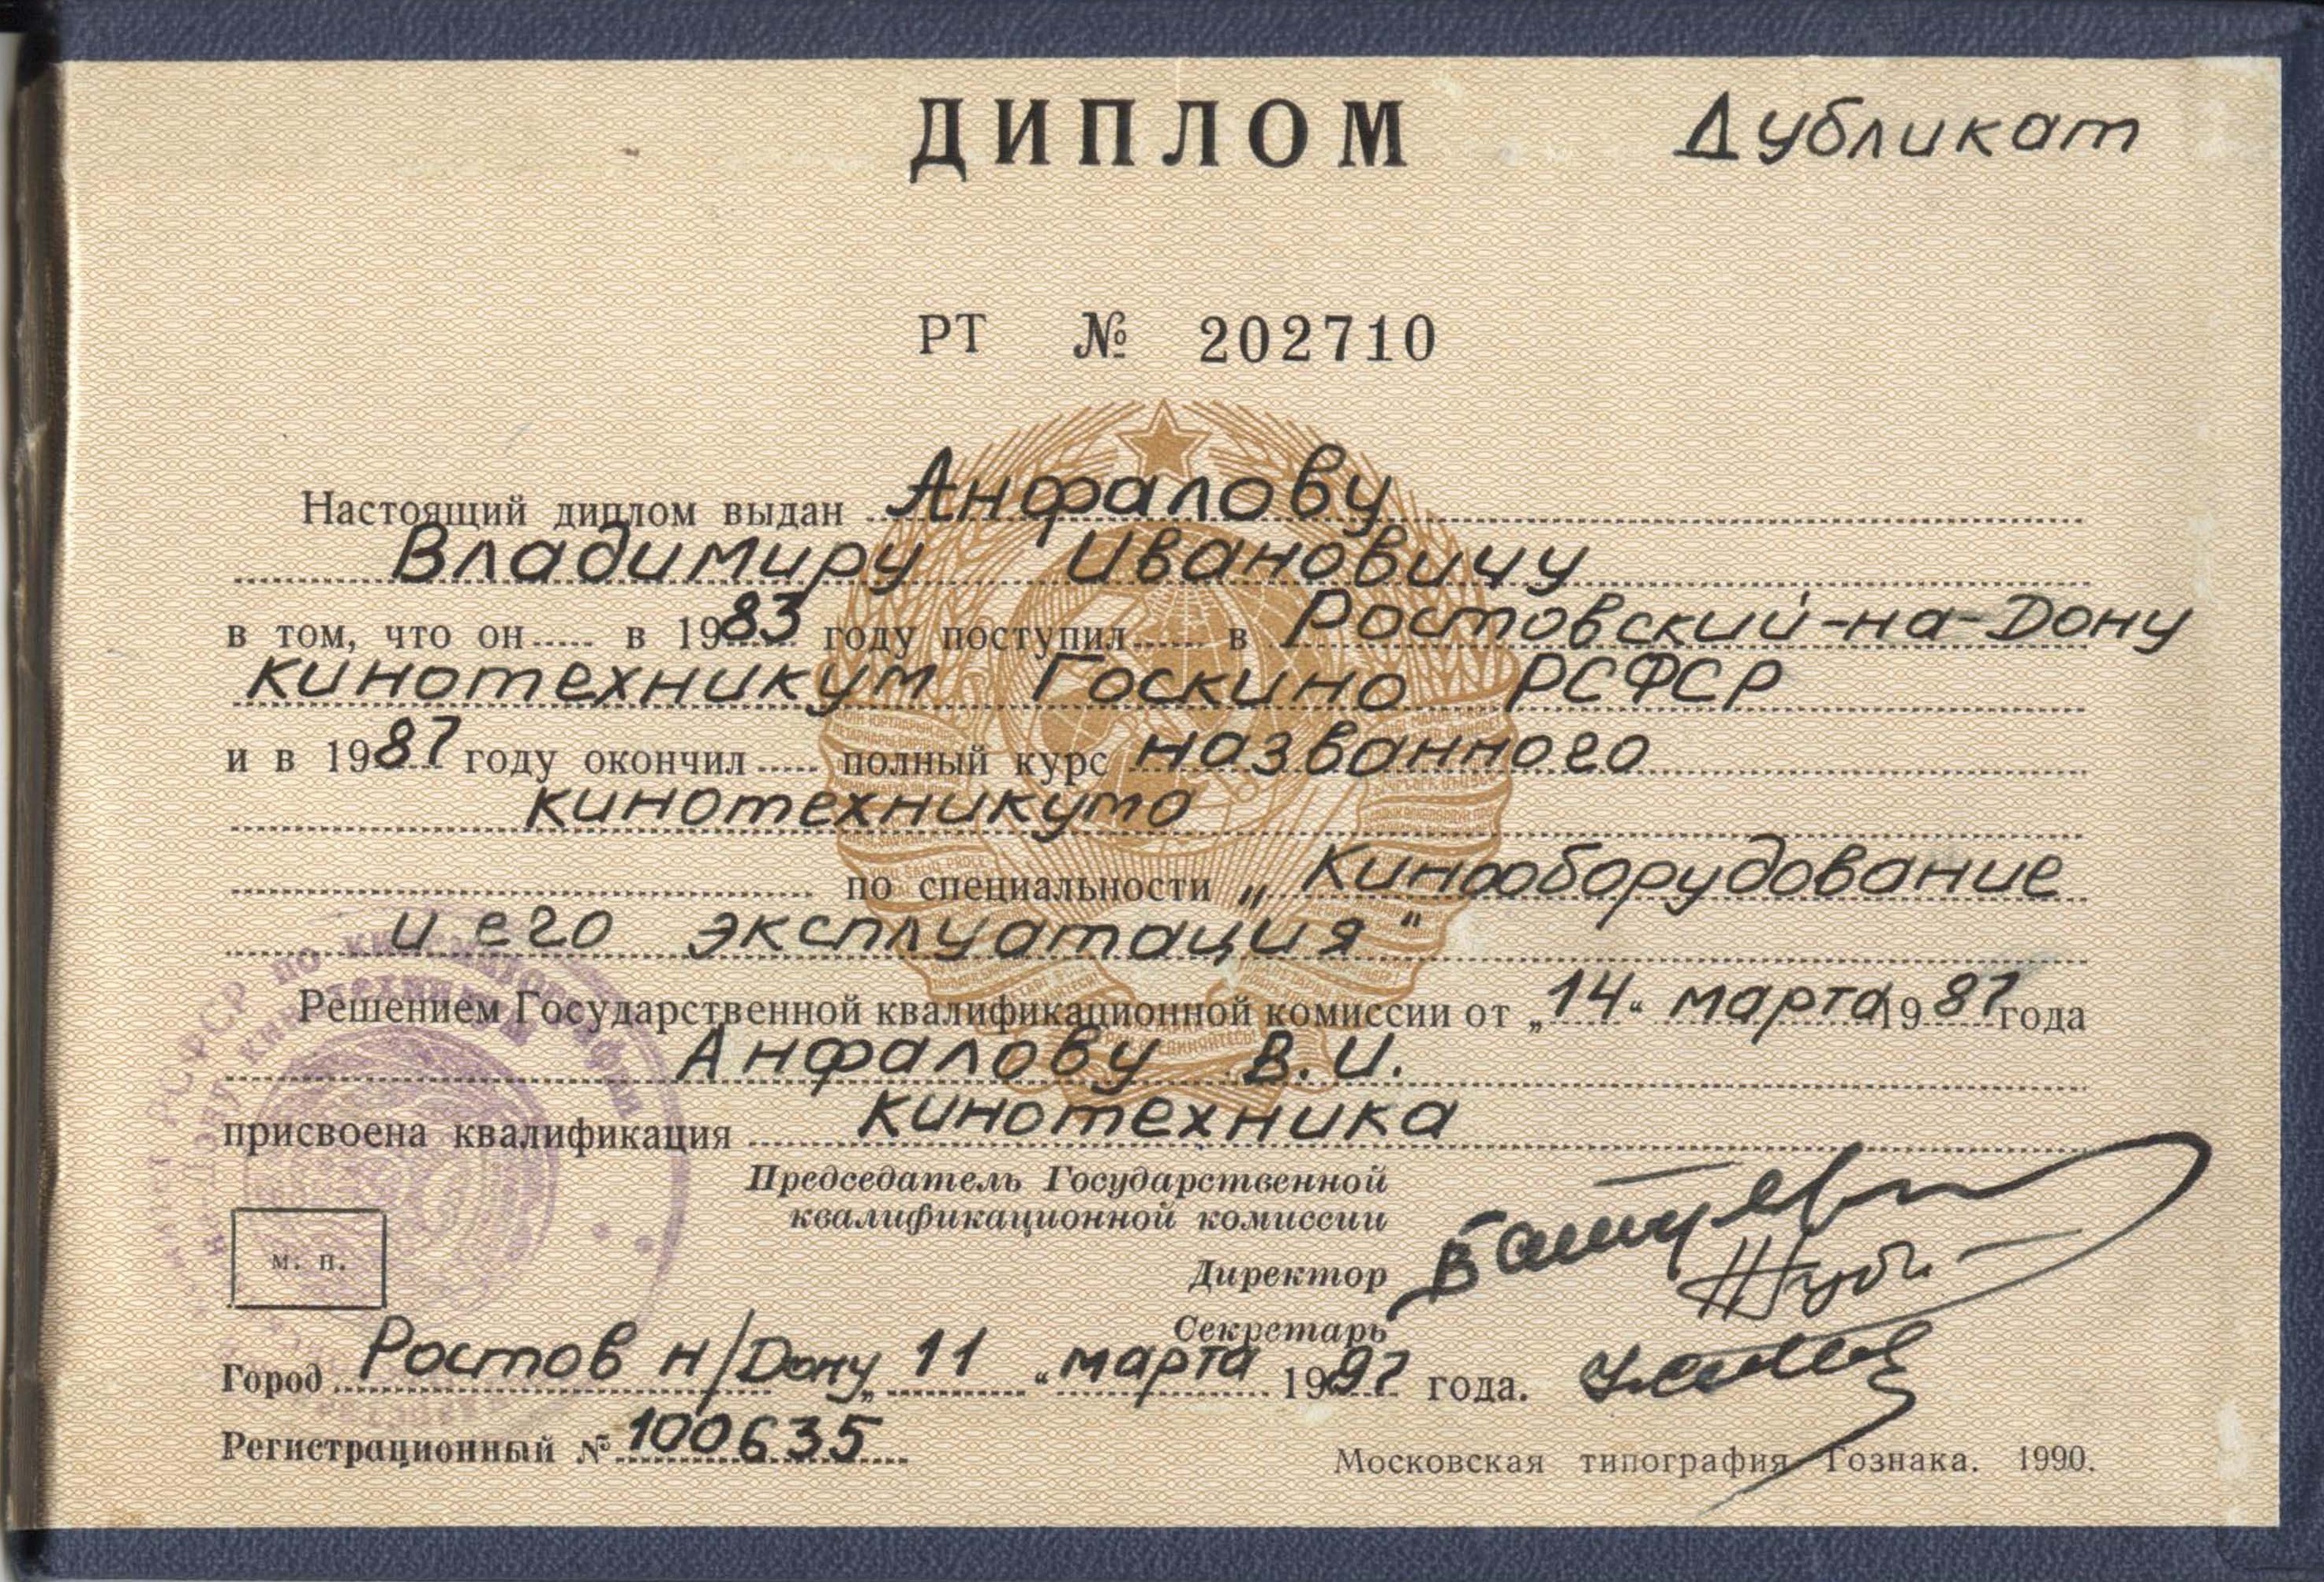 ДИПЛОМ Дубликат
РТ № 202710
Настоящий диплом выдан Анфалову
Владимиру Ивановичу
в том, что он в 1983 году поступил в Ростовский-на-Дону
кинотехникум Госкино РСФСР
и в 1987 году окончил полный курс названного
кинотехникума
по специальности „Кинооборудование
и его эксплуатация"
Решением Государственной квалификационной комиссии от „14" марта 1987 года
Анфалову В.И.
присвоена квалификация кинотехника
Председатель Государственной
квалификационной комиссии
Директор
Секретарь
м. п.
Город Ростов н/Дону „11" марта 1997 года.
Регистрационный № 100635
Московская типография Гознака. 1990.